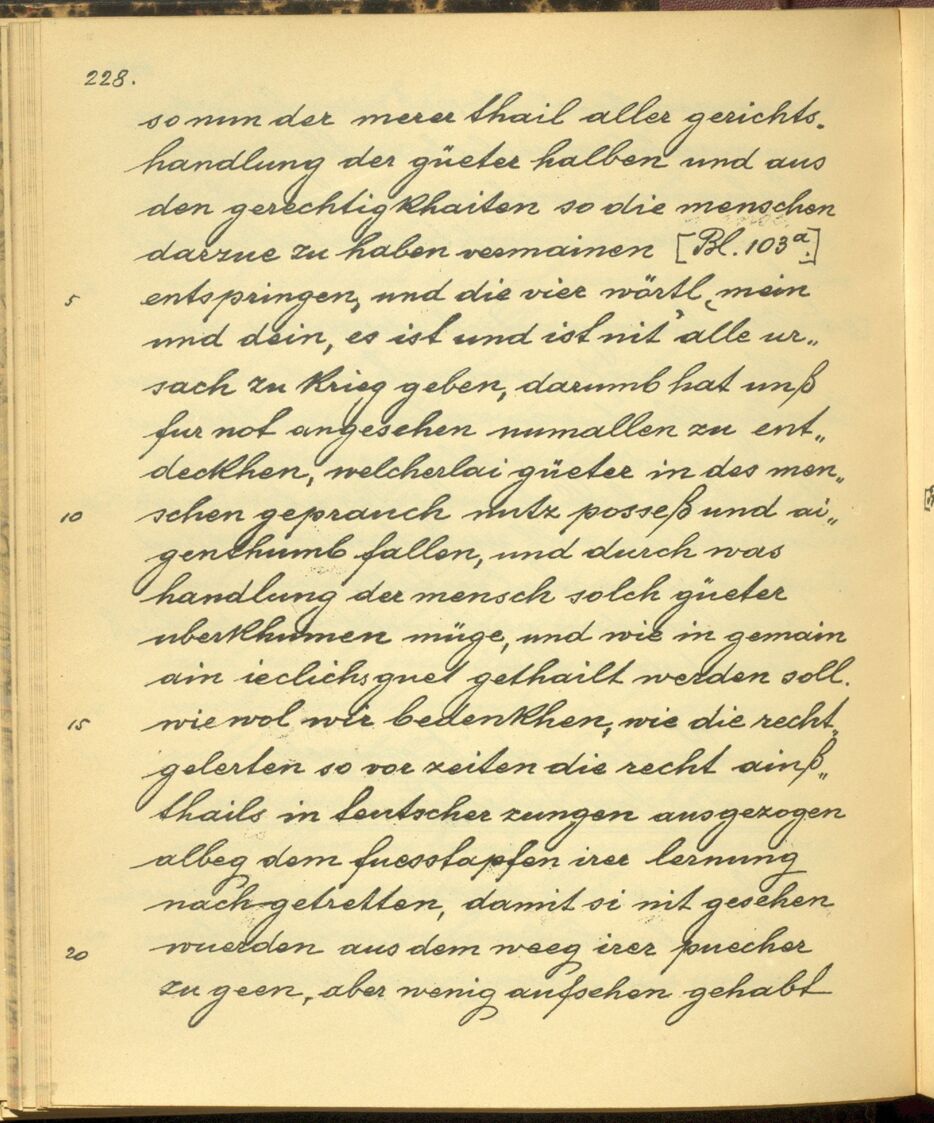 228.
so nun der merer thail aller gerichts.
handlung der güeter halben und aus
den gerechtigkhaiten so die menschen
darzue zu haben vermainen [Bl. 103a.]
5 entspringen, und die vier wörtl ‚mein
und dein, es ist und ist nit’ alle ur„
sach zu krieg geben, darumb hat unß
fur not angesehen numallen zu ent„
deckhen, welcherlai güeter in des men„
10 schen geprauch nutz posseß und ai„
genthumb fallen, und durch was
handlung der mensch solch güeter
uberkhumen müge, und wie in gemain
ain ieclichs guet gethailt werden soll.
15 wie wol wir bedenkhen, wie die recht„
gelerten so vor zeiten die recht ainß„
thails in teutscher zungen ausgezogen
albeg dem fuesstapfen irer lernung
nach getretten, damit si nit gesehen
20 wuerden aus dem weeg irer puecher
zu geen, aber wenig aufsehen gehabt